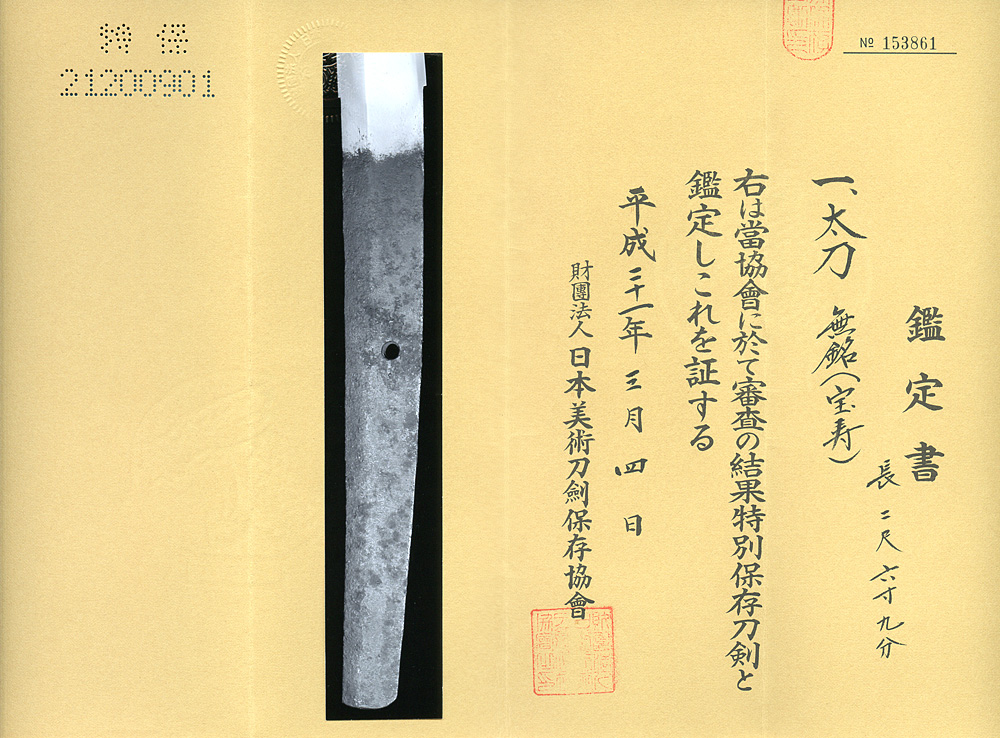 № 153861
鑑定書
一、太刀 無銘(宝寿)
長二尺六寸九分
右は當協會に於て審査の結果特別保存刀剣と
鑑定しこれを証する
平成二十一年三月四日
財團法人 日本美術刀劍保存協會
特 保
21200901